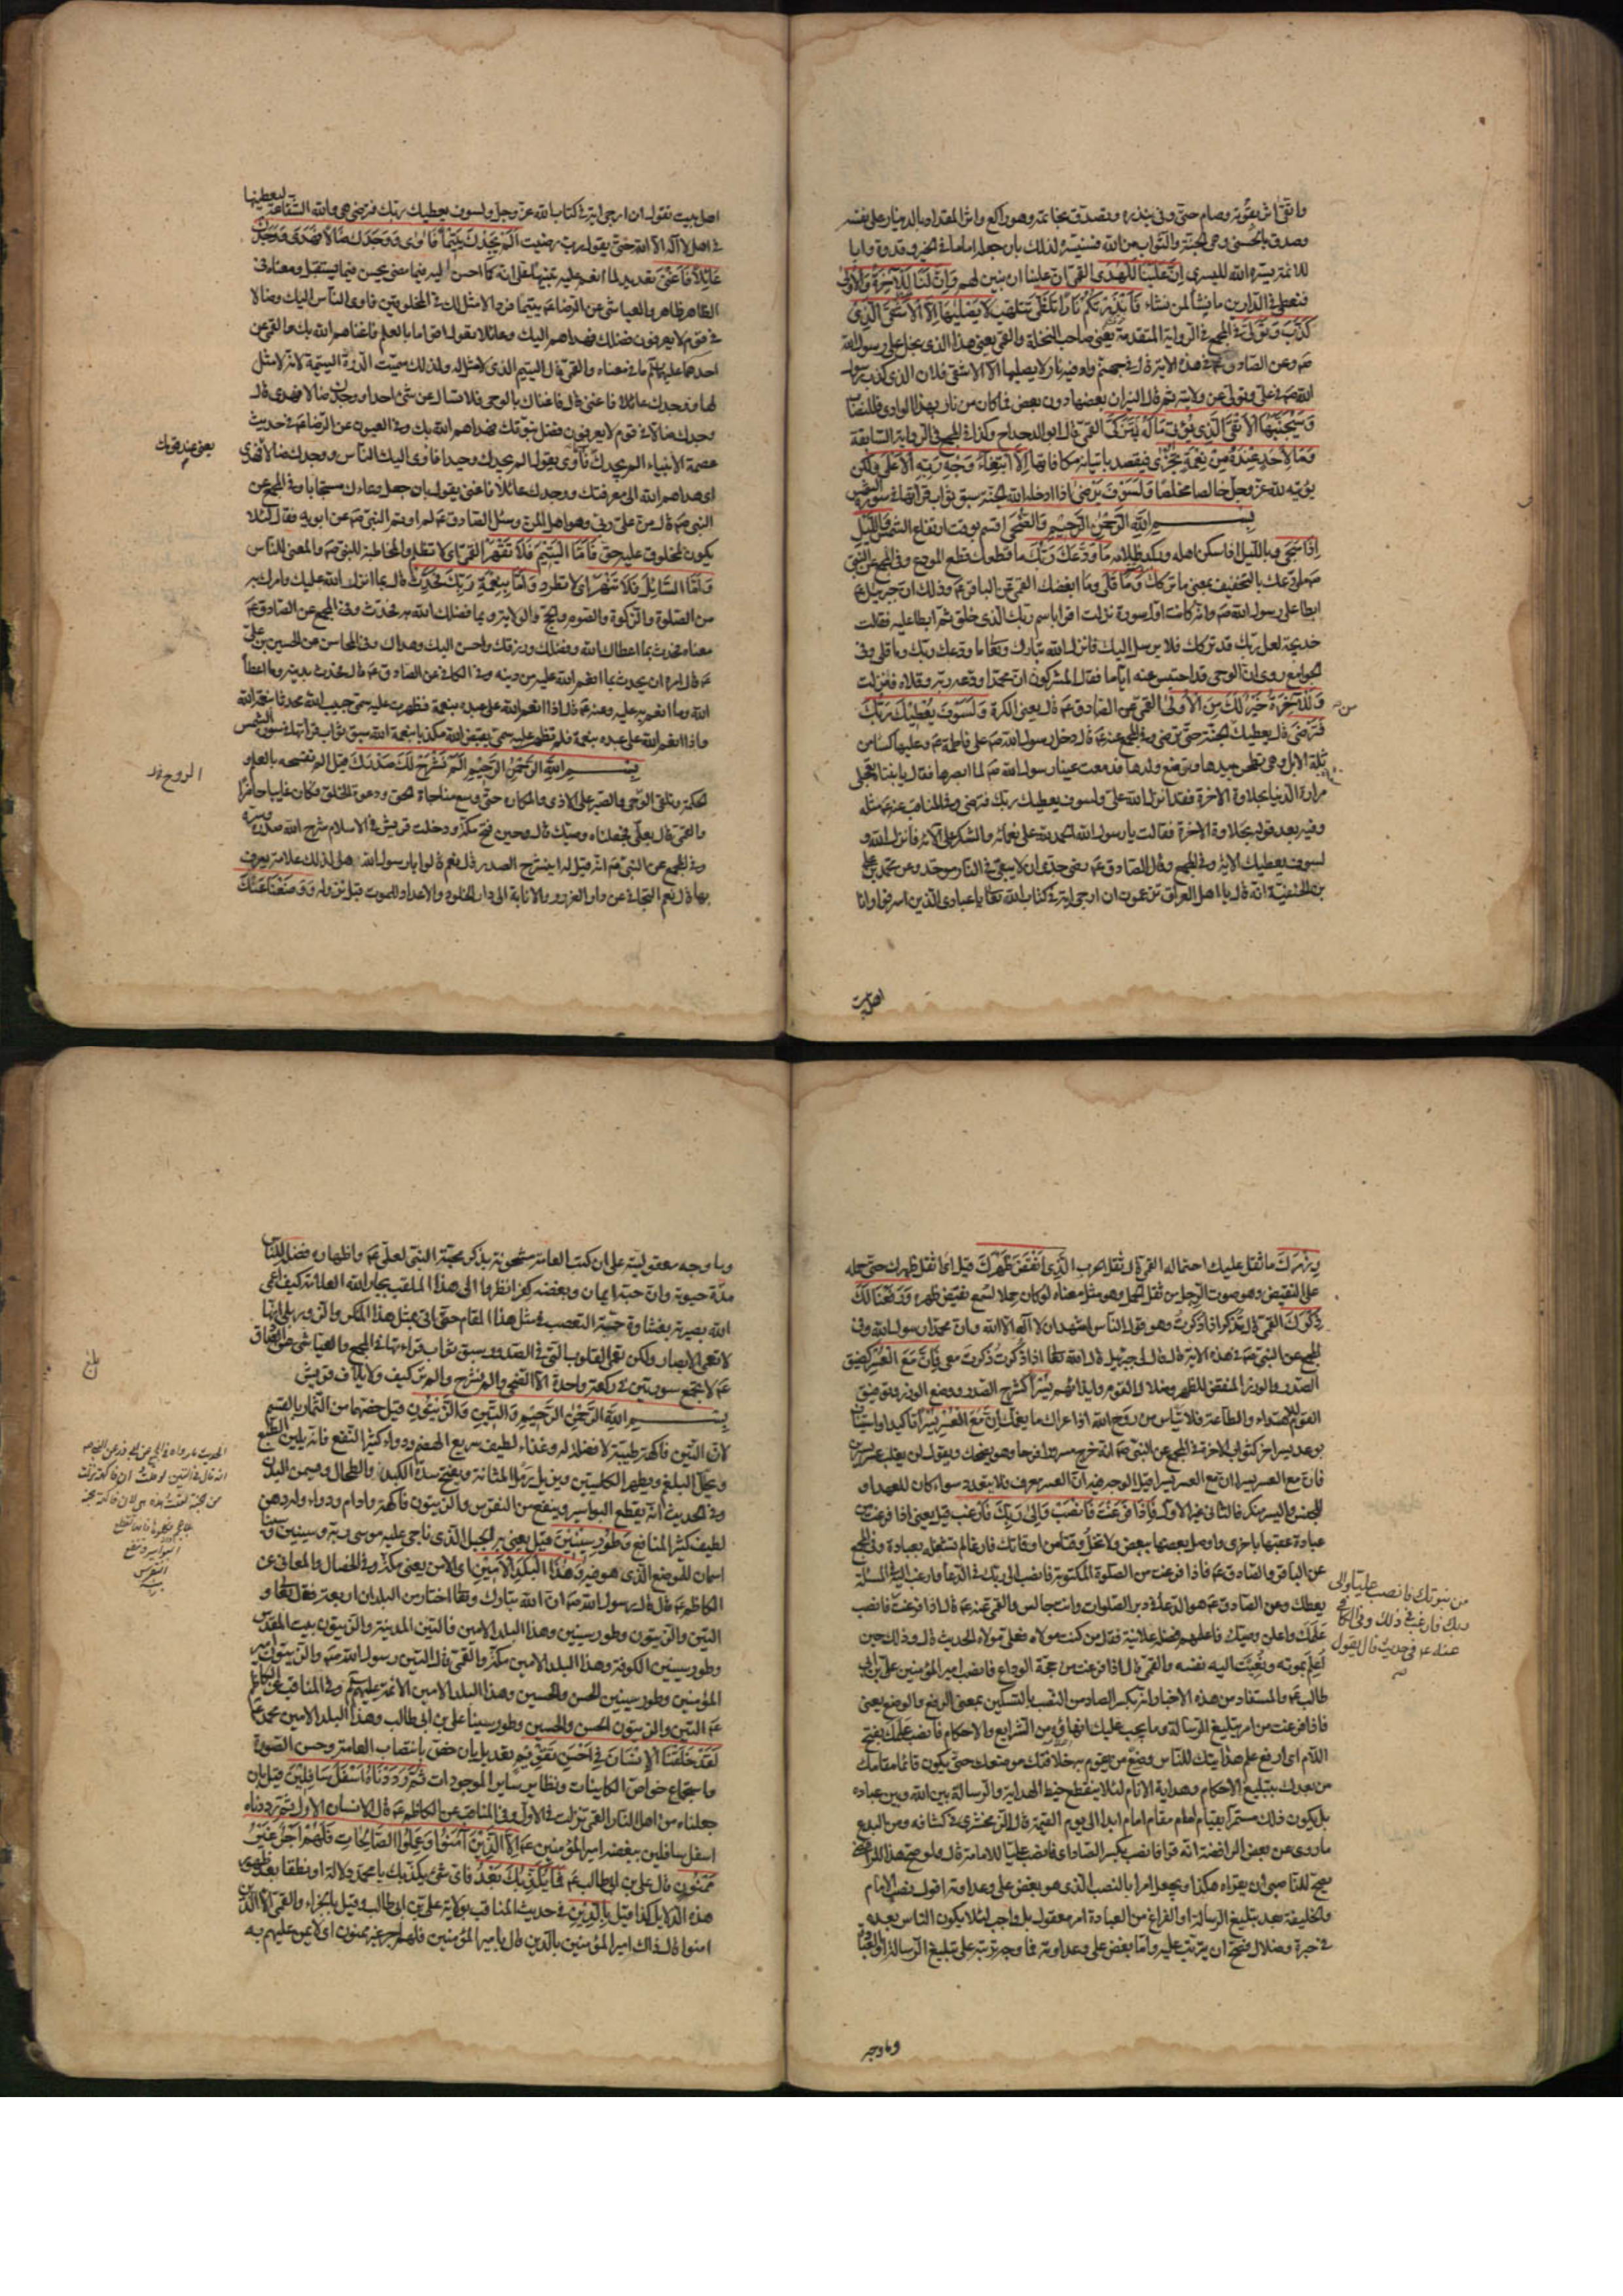 واتقى اثر بقوته وصام حتى وفى بنذره وتصدق بخاتمه وهو راكع واثر المقداد بالدينار على نفسه
وصدق بالحسنى وهى الجنة والثواب من الله فسنيسره لذلك بان جعله اماما فى الخير وقدوة وابا
للائمة يسره الله لليسرى اِنَّ عَلَيْنَا لَلْهُدٰى القمى ان علينا ان نبين لهم وَاِنَّ لَنَا لَلْآخِرَةَ وَالْاُولٰى
فنعطى فى الدارين ما نشاء لمن نشاء فَاَنْذَرْتُكُمْ نَارًا تَلَظّٰى تتلهب لَا يَصْلٰيهَا اِلَّا الْاَشْقَى الَّذِى
كَذَّبَ وَتَوَلّٰى فى المجمع فى الرواية المتقدمة يعنى صاحب النخلة والقمى يعنى هذا الذى بخل على رسول الله
صَ وعن الصادق عَ فى هذه الاية قال فى جهنم واد فيه نار لا يصليها الا الاشقى فلان الذى كذب رسول
الله صَ فى على وتولى عن ولايته ثم قال النيران بعضها دون بعض فما كان من نار بهذا الوادى فللنصاب
وَسَيُجَنَّبُهَا الْاَتْقَى الَّذِى يُؤْتِى مَالَهُ يَتَزَكّٰى القمى قال ابو الدحداح وكذا فى المجمع فى الرواية السابقة
وَمَا لِاَحَدٍ عِنْدَهُ مِنْ نِعْمَةٍ تُجْزٰى فيقصد بايتائه مكافاتها اِلَّا ابْتِغَاءَ وَجْهِ رَبِّهِ الْاَعْلٰى ولكن
يؤتيه لله عز وجل خالصا مخلصا وَلَسَوْفَ يَرْضٰى اذا ادخله الله الجنة سبق ثواب قرائتها فى سورة الشمس
بِسْمِ اللهِ الرَّحْمٰنِ الرَّحِيمِ وَالضُّحٰى اقسم بوقت ارتفاع الشمس وَاللَّيْلِ
اِذَا سَجٰى وبالليل اذا سكن اهله وركد ظلامه مَا وَدَّعَكَ رَبُّكَ ما قطعك قطع المودع وفى المجمع عن النبى
صَ ما ودعك بالتخفيف بمعنى ما تركك وَمَا قَلٰى وما ابغضك القمى عن الباقر عَ وذلك ان جبرئيل عَ
ابطا على رسول الله صَ وانه كانت اول سورة نزلت اقرا باسم ربك الذى خلق ثم ابطا عليه فقالت
خديجة لعل ربك قد تركك فلا يرسل اليك فانزل الله تبارك وتعالى ما ودعك ربك وما قلى وفى
الجوامع روى ان الوحى قد احتبس عنه اياما فقال المشركون ان محمدا ودعه ربه وقلاه فنزلت
وَلَلْآخِرَةُ خَيْرٌ لَكَ مِنَ الْاُولٰى القمى عن الصادق عَ قال يعنى الكرة وَلَسَوْفَ يُعْطِيكَ رَبُّكَ
فَتَرْضٰى قال يعطيك من الجنة حتى ترضى وفى المجمع عنه عَ قال دخل رسول الله صَ على فاطمة عَ وعليها كساء من
ثلة الابل وهى تطحن بيدها وترضع ولدها فدمعت عينا رسول الله صَ لما ابصرها فقال يا بنتاه تعجلى
مرارة الدنيا بحلاوة الاخرة فقد انزل الله على ولسوف يعطيك ربك فترضى وفى المناقب عنه عَ مثله
وفيه بعد قوله بحلاوة الاخرة فقالت يا رسول الله الحمد لله على نعمائه والشكر على آلائه فانزل الله و
لسوف يعطيك الاية وفى المجمع وقال الصادق عَ رضى جدى ان لا يبقى فى النار موحد وعن محمد بن على
بن الحنفية انه قال يا اهل العراق تزعمون ان ارجى اية فى كتاب الله تعالى يا عبادى الذين اسرفوا وانا
اهل بيت
اهل بيت نقول ان ارجى اية فى كتاب الله عز وجل ولسوف يعطيك ربك فترضى هى والله الشفاعة ليعطينها
فى اهل لا اله الا الله حتى يقول رب رضيت اَلَمْ يَجِدْكَ يَتِيمًا فَاٰوٰى وَوَجَدَكَ ضَالًّا فَهَدٰى وَوَجَدَكَ
عَائِلًا فَاَغْنٰى تعديد لما انعم عليه تنبيها على انه كما احسن اليه فيما مضى يحسن فيما يستقبل ومعناه فى
الظاهر ظاهر والعياشى عن الرضا عَ يتيما فردا لا مثل لك فى المخلوقين فاوى الناس اليك وضالا
فى قوم لا يعرفون فضلك فهداهم اليك وعائلا تعول اقواما بالعلم فاغناهم الله بك والقمى عن
احدهما عليهما السلم ما فى معناه والقمى قال اليتيم الذى لا مثل له ولذلك سميت الدرة اليتيمة لانه لا مثل
لها ووجدك عائلا فاغنى قال فاغناك بالوحى فلا تسال عن شئ احدا ووجدك ضالا فهدى قال
وجدك ضالا فى قوم لا يعرفون فضل نبوتك فهداهم الله بك وفى العيون عن الرضا عَ فى حديث
عصمة الانبياء الم يجدك يتيما فآوى يقول الم يجدك وحيدا فاوى اليك الناس ووجدك ضالا فهدى
يعنى عند قومك
اى هداهم الله الى معرفتك ووجدك عائلا فاغنى يقول بان جعل دعاءك مستجابا وفى المجمع عن
النبى صَ قال من على ربى وهو اهل المن وسئل الصادق عَ لم اوتم النبى صَ عن ابويه فقال لئلا
يكون لمخلوق عليه حق فَاَمَّا الْيَتِيمَ فَلَا تَقْهَرْ القمى اى لا تظلم والمخاطبة للنبى صَ والمعنى للناس
وَاَمَّا السَّائِلَ فَلَا تَنْهَرْ اى لا تطرد وَاَمَّا بِنِعْمَةِ رَبِّكَ فَحَدِّثْ قال بما انزل الله عليك وامرك به
من الصلوة والزكوة والصوم والحج والولاية وبما فضلك الله به فحدث وفى المجمع عن الصادق عَ
معناه فحدث بما اعطاك الله وفضلك ورزقك واحسن اليك وهداك وفى المحاسن عن الحسين بن على
عَ قال امره ان يحدث بما انعم الله عليه من دينه وفى الكافى عن الصادق عَ قال فحدث بدينه وما اعطاه
الله وما انعم به عليه وعنه عَ قال اذا انعم الله على عبده بنعمة فظهرت عليه سمى حبيب الله محدثا بنعمة الله
واذا انعم الله على عبده بنعمة فلم تظهر عليه سمى بغيض الله مكذبا بنعمة الله سبق ثواب قرائتها فى سورة الشمس
بِسْمِ اللهِ الرَّحْمٰنِ الرَّحِيمِ اَلَمْ نَشْرَحْ لَكَ صَدْرَكَ قيل الم نفسحه بالعلم و
الحكمة وتلقى الوحى والصبر على الاذى والمكاره حتى وسع مناجاة الحق ودعوة الخلق فكان غايبا حاضرا
والقمى قال بعلى فجعلناه وصيك قال وحين فتح مكة ودخلت قريش فى الاسلام شرح الله صدره ويسره
وفى المجمع عن النبى صَ انه قيل له اينشرح الصدر قال نعم قالوا يا رسول الله وهل لذلك علامة يعرف
بها قال نعم التجافى عن دار الغرور والانابة الى دار الخلود والاعداد للموت قبل نزوله وَوَضَعْنَا عَنْكَ
وِزْرَكَ ما ثقل عليك احتماله القمى قال ثقل الحرب الَّذِى اَنْقَضَ ظَهْرَكَ قيل اى اثقل ظهرك حتى حمله
على النقيض وهو صوت الرحل من ثقل الحمل وهو مثل معناه لو كان حملا لسمع نقيض ظهره وَرَفَعْنَا لَكَ
ذِكْرَكَ القمى قال تذكر اذا ذكرت وهو قول الناس اشهد ان لا اله الا الله وان محمدا رسول الله وفى
المجمع عن النبى صَ فى هذه الاية قال قال لى جبرئيل قال الله تعالى اذا ذكرت ذكرت معى فَاِنَّ مَعَ الْعُسْرِ كضيق
الصدر والوزر المنقض للظهر وضلال القوم وايذائهم يُسْرًا كشرح الصدر ووضع الوزر وتوفيق
القوم للاهتداء والطاعة فلا تياس من روح الله اذا عراك ما يغمك اِنَّ مَعَ الْعُسْرِ يُسْرًا تاكيد او استيناف
بوعد يسر اخر كثواب الاخرة فى المجمع عن النبى صَ انه خرج مسرورا فرحا وهو يضحك ويقول لن يغلب عسر يسرين
فان مع العسر يسرا ان مع العسر يسرا قيل الوجه فيه ان العسر معرف فلا يتعدد سواء كان للعهد او
للجنس واليسر منكر فالثانى غير الاول فَاِذَا فَرَغْتَ فَانْصَبْ وَاِلٰى رَبِّكَ فَارْغَبْ قيل يعنى اذا فرغت من
عبادة عقبها باخرى واوصل بعضها ببعض ولا تخل وقتا من اوقاتك فارغا لم تشغله بعبادة وفى المجمع
عن الباقر والصادق عَ فاذا فرغت من الصلوة المكتوبة فانصب الى ربك فى الدعاء وارغب اليه فى المسئلة
يعطك وعن الصادق عَ هو الدعاء فى دبر الصلوات وانت جالس والقمى عنه عَ قال اذا فرغت فانصب
من نبوتك فانصب عليا والى
ربك فارغب فى ذلك وفى الكافى
عنه عَ فى حديث قال يقول
عَلَمَك واعلن وصيك فاعلمهم فضله علانية فقال من كنت مولاه فعلى مولاه الحديث قال وذلك حين
اُعلم بموته ونُعِيَت اليه نفسه والقمى قال اذا فرغت من حجة الوداع فانصب امير المؤمنين على بن ابى
طالب عَ والمستفاد من هذه الاخبار انه بكسر الصاد من النصب بالتسكين بمعنى الرفع والوضع يعنى
فاذا فرغت من امر تبليغ الرسالة وما يجب عليك انهاؤه من الشرايع والاحكام فانصب علمك بفتح
اللام اى ارفع علم هدايتك للناس وضع من يقوم به خلافتك موضعك حتى يكون قائما مقامك
من بعدك بتبليغ الاحكام وهداية الانام لئلا ينقطع خيط الهداية والرسالة بين الله وبين عباده
بل يكون ذلك مستمرا بقيام امام مقام امام ابدا الى يوم القيمة قال الزمخشرى فى كشافه ومن البدع
ما روى عن بعض الرافضة انه قرا فانصب بكسر الصاد اى فانصب عليا للامامة قال ولو صح هذا للرافضى
صح للناصبى ان يقراه هكذا ويجعله امرا بالنصب الذى هو بغض على وعداوته اقول نصب الامام
والخليفة بعد تبليغ الرسالة او الفراغ من العبادة امر معقول بل واجب لئلا يكون الناس بعده
فى حيرة وضلال فيصح ان يترتب عليه واما بغض على وعداوته فما وجه ترتبه على تبليغ الرسالة او العبادة
وما وجه
وما وجه معقوليته على ان كتب العامة مشحونة بذكر محبة النبى لعلى عَ واظهاره فضله للناس
مدة حيوته وان حبه ايمان وبغضه كفر انظروا الى هذا الملقب بجار الله العلامة كيف اعمى
الله بصيرته بغشاوة حمية التعصب فى مثل هذا المقام حتى اتى بمثل هذا المنكر والزور بلى انها
لا تعمى الابصار ولكن تعمى القلوب التى فى الصدور سبق ثواب قراءتها فى المجمع والعياشى عن الصادق
عَ لا تجمع سورتين فى ركعة واحدة الا الضحى والم نشرح والم تر كيف ولايلاف قريش
بِسْمِ اللهِ الرَّحْمٰنِ الرَّحِيمِ وَالتِّينِ وَالزَّيْتُونِ قيل خصهما من الثمار بالقسم
لان التين فاكهة طيبة لا فضل له وغذاء لطيف سريع الهضم ودواء كثير النفع فانه يلين الطبع
ويحلل البلغم ويطهر الكليتين ويزيل رمل المثانة ويفتح سدة الكبد والطحال ويسمن البدن
وفى الحديث انه يقطع البواسير وينفع من النقرس والزيتون فاكهة وادام ودواء وله دهن
لطيف كثير المنافع وَطُورِ سِينِينَ قيل يعنى به الجبل الذى ناجى عليه موسى ربه وسينين وسيناء
اسمان للموضع الذى هو فيه وَهٰذَا الْبَلَدِ الْاَمِينِ اى الامن يعنى مكة وفى الخصال والمعانى عن
الكاظم عَ قال قال رسول الله صَ ان الله تبارك وتعالى اختار من البلدان اربعة فقال تعالى و
التين والزيتون وطور سينين وهذا البلد الامين فالتين المدينة والزيتون بيت المقدس
وطور سينين الكوفة وهذا البلد الامين مكة والقمى قال التين رسول الله صَ والزيتون امير
المؤمنين وطور سينين الحسن والحسين وهذا البلد الامين الائمة عليهم السلم وفى المناقب عن الكاظم
عَ التين والزيتون الحسن والحسين وطور سينا على بن ابى طالب وهذا البلد الامين محمد صَ
لَقَدْ خَلَقْنَا الْاِنْسَانَ فِى اَحْسَنِ تَقْوِيمٍ تعديل بان خص بانتصاب القامة وحسن الصورة
واستجماع خواص الكاينات ونظاير ساير الموجودات ثُمَّ رَدَدْنَاهُ اَسْفَلَ سَافِلِينَ قيل بان
جعلناه من اهل النار القمى نزلت فى الاول وفى المناقب عن الكاظم عَ قال الانسان الاول ثم رددناه
اسفل سافلين ببغضه امير المؤمنين عَ اِلَّا الَّذِينَ اٰمَنُوا وَعَمِلُوا الصَّالِحَاتِ فَلَهُمْ اَجْرٌ غَيْرُ
مَمْنُونٍ قال على بن ابى طالب عَ فَمَا يُكَذِّبُكَ بَعْدُ فاى شئ يكذبك يا محمد دلالة او نطقا بعد ظهور
هذه الدلايل كذا قيل بِالدِّينِ فى حديث المناقب بولاية على بن ابى طالب وقيل بالجزاء والقمى الا الذين
امنوا قال ذاك امير المؤمنين بالدين قال بامير المؤمنين فلهم اجر غير ممنون اى لا يمن عليهم به
بلغ
الحديث ما رواه فى المجمع عن ابى ذر عن النبى صَ
انه قال فى التين لو قلت ان فاكهة نزلت
من الجنة لقلت هذه هى لان فاكهة الجنة
بلا عجم فكلوها فانها تقطع
البواسير وتنفع
النقرس